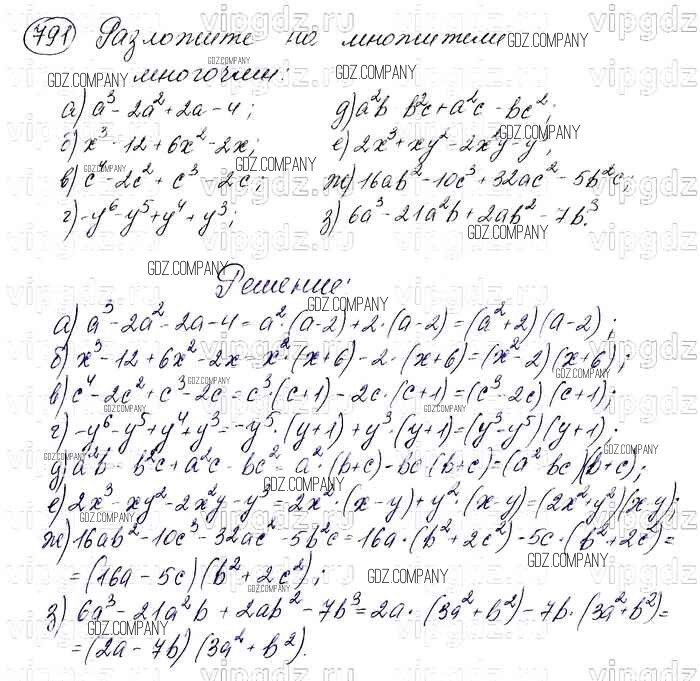 791 Разложите на множители
многочлен:
а) a³ - 2a² + 2a - 4; д) a²b b²c + a²c - bc²;
б) x³ - 12 + 6x² - 2x; е) 2x³ + xy² - 2x²y - y³;
в) c⁴ - 2c² + c³ - 2c; ж) 16ab² - 10c³ + 32ac² - 5b²c;
г) -y⁶ - y⁵ + y⁴ + y³; з) 6a³ - 21a²b + 2ab² - 7b³.
Решение:
а) a³ - 2a² - 2a - 4 = a² · (a - 2) + 2 · (a - 2) = (a² + 2)(a - 2);
б) x³ - 12 + 6x² - 2x = x² · (x + 6) - 2 · (x + 6) = (x² - 2)(x + 6);
в) c⁴ - 2c² + c³ - 2c = c³ · (c + 1) - 2c · (c + 1) = (c³ - 2c)(c + 1);
г) -y⁶ - y⁵ + y⁴ + y³ = -y⁵ · (y + 1) + y³ · (y + 1) = (y³ - y⁵)(y + 1).
д) a²b - b²c + a²c - bc² = a² · (b + c) - bc · (b + c) = (a² bc)(b + c);
е) 2x³ - xy² - 2x²y - y³ = 2x² · (x - y) + y² · (x - y) = (2x² + y²)(x - y);
ж) 16ab² - 10c³ - 32ac² - 5b²c = 16a · (b² + 2c²) - 5c · (b² + 2c²) =
= (16a - 5c)(b² + 2c²);
з) 6a³ - 21a²b + 2ab² - 7b³ = 2a · (3a² + b²) - 7b · (3a² + b²) =
= (2a - 7b)(3a² + b²).